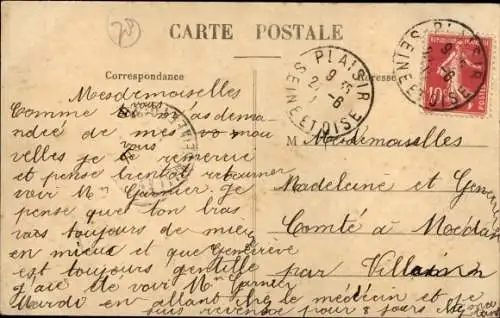 28
CARTE POSTALE
Correspondance
Adresse
PLAISIR
9
2 -6
SEINE ET OISE
PLAISIR
SEINE ET OISE
10
POSTES
Mesdemoiselles
Comme vous m'as deman
dée de mes nou
velles je vous remercie
et pense bientot retourner
voir Mr Garnier. Je
pense que ton bras
vas toujours de mieux
en mieux et que Geneviève
est toujours gentille
j'ai été voir Mr Garnier
Mardi en allant chez le médecin et je
suis revenue pour 8 jours
M Mesdemoiselles
Madeleine et Genev
Comté à Médan
par Villainn